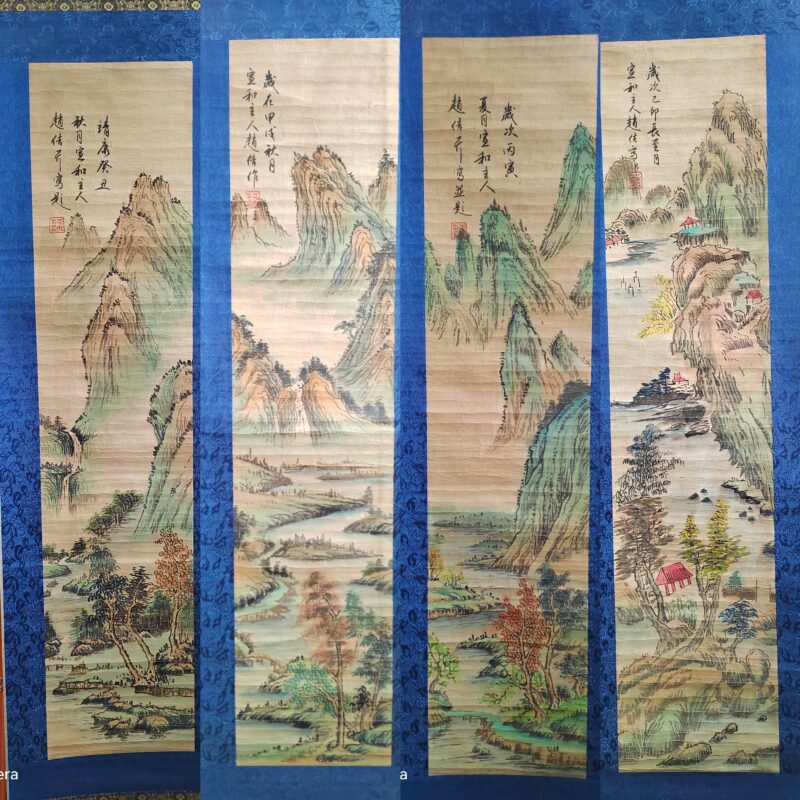 靖康癸丑
秋月宣和主人
趙佶并寫題
歲在甲戌秋月
宣和主人趙佶作
歲次丙寅
夏月宣和主人
趙佶并寫並題
歲次己卯長至月
宣和主人趙佶寫
era
a